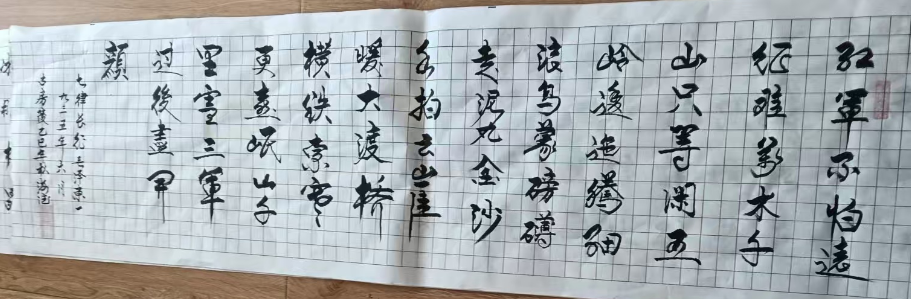 红軍不怕遠
征難萬水千
山只等闲五
岭逶迤腾细
浪乌蒙磅礴
走泥丸金沙
水拍云崖
暖大渡桥
横铁索寒
更喜岷山千
里雪三軍
过後盡开
颜
七律长征毛泽東一
九三五年 月
乙巳年秋